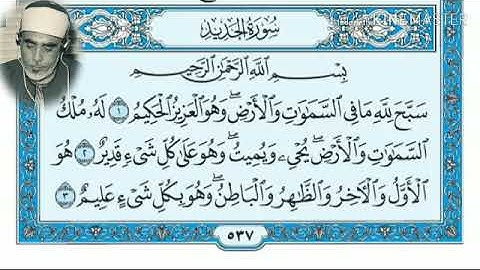 سُورَةُ الحَدِيدِ
بِسۡمِ ٱللَّهِ ٱلرَّحۡمَٰنِ ٱلرَّحِيمِ
سَبَّحَ لِلَّهِ مَا فِي ٱلسَّمَٰوَٰتِ وَٱلۡأَرۡضِۖ وَهُوَ ٱلۡعَزِيزُ ٱلۡحَكِيمُ ١ لَهُۥ مُلۡكُ
ٱلسَّمَٰوَٰتِ وَٱلۡأَرۡضِۖ يُحۡيِۦ وَيُمِيتُۖ وَهُوَ عَلَىٰ كُلِّ شَيۡءٖ قَدِيرٌ ٢ هُوَ
ٱلۡأَوَّلُ وَٱلۡأٓخِرُ وَٱلظَّٰهِرُ وَٱلۡبَاطِنُۖ وَهُوَ بِكُلِّ شَيۡءٍ عَلِيمٌ ٣
٥٣٧